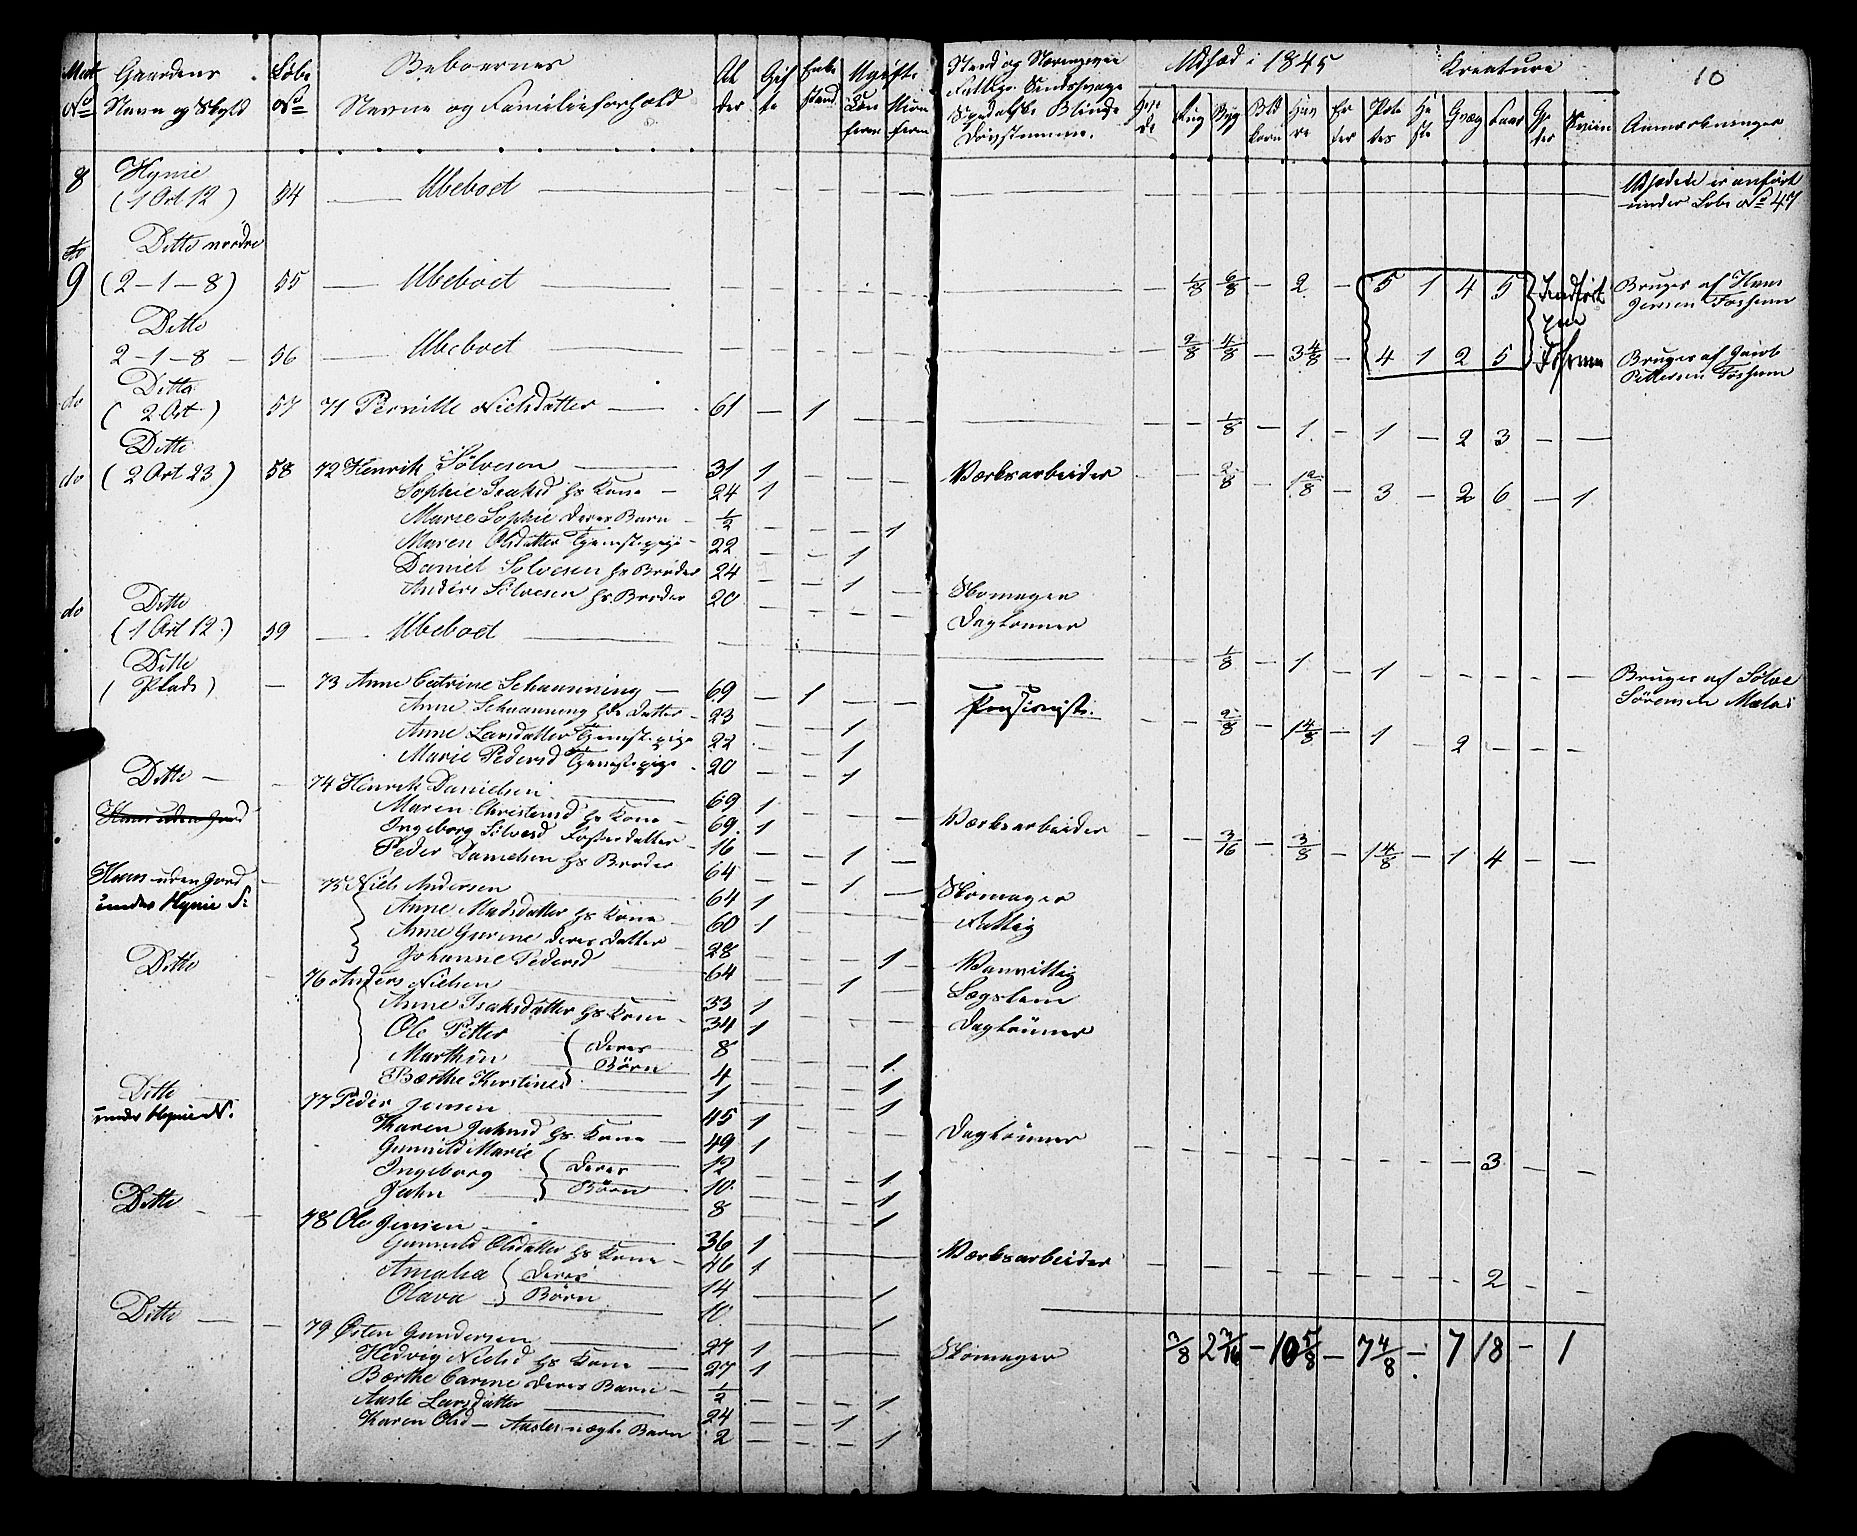 Matr No Gaardens Navne og Skyld Løbe No Beboernes Navne og Familieforhold Al der Gif te Enke stand Ugifte Stand og Næringsvei Udsæd i 1845 Kreature Anmærkninger 10
8 Hynie
(1 Ort 12) 54 — Ubeboet — Udsæden er anført under Løbe No 47
do Ditto nordre
9 (2-1-8) 55 — Ubeboet — 1/8 6/8 — 2 — 5 1 4 5 Bruges af Hans Jensen Fossum
Ditto
2-1-8 — 56 — Ubeboet — 2/8 4/8 — 3 4/8 — 4 1 2 5 Bruges af Jacob Pettersen Fossum
do Ditto
(2 Ort) 57 71 Pernille Nielsdatter — 61 — 1 — 1/8 — 1 — 1 — 2 3 — —
Ditto
do (2 Ort 23) 58 72 Henrik Sølvesen — 31 1 Værksarbeider 2/8 — 1 2/8 — 3 — 2 6 — 1
Sophie Isaksd hs Kone — 24 1
Marie Sophie deres Barn — 1/2 — — — 1
Maren Olsdatter Tjenstepige — 22 — — 1
Daniel Sølvesen hs Broder 24 — — 1 — Skomager
Anders Sølvesen hs Broder 20 Daglønner
do Ditto
(1 Ort 12) 59 — Ubeboet — 1/8 — 1 — 1 — — — — — Bruges af Sølve Sørensen
Ditto
(Plads) — 73 Anne Catrine Schaanning — 69 — 1 — Pensionist. 2/8 — 1 4/8 — 1 — 2 — — —
Anne Schaanning hds Datter — 23 — — 1
Anne Larsdatter Tjenstepige 22 — — 1
Marie Pedersd Tjenstepige 20 — — 1
Ditto — 74 Henrik Danielsen — 69 1 Værksarbeider — — 3/16 — 3/8 — 1 4/8 — 1 4 — —
Huus uden Jord
Maren Christensd hs Kone — 69 1
Ingeborg Sølvesd Fosterdatter — 16 — — 1
Peder Danielsen hs Broder 64 — — 1 — Skomager
Huus uden Jord — 75 Niels Andersen — 64 1 Fattig
under Hynie S:
Anne Madsdatter hs Kone — 60 1
Anne Gurine deres Datter — 28 — — — 1 — Vanvittig
Johanne Pedersd 64 — — 1 Lægslem
Ditto — 76 Anders Nielsen — 33 1 Daglønner
Anne Isaksdatter hs Kone — 34 1
Ole Petter { deres 8 — — — 1
Marthin Børn 4 — — — 1
Børthe Kirstine } 1 — — — 1
Ditto — 77 Peder Jensen — 45 1 Daglønner — — — — — — — — 3 — —
under Hynie N.
Karen Jahnsd hs Kone — 49 1
Gunnild Marie 12 — — — 1
Ingeborg { deres 10 — — — 1
Jahn Børn 8 — — — 1
Ditto — 78 Ole Jensen — 36 1 Værksarbeider — — — — — — — — 2 — —
Gunnild Olsdatter hs Kone — 46 1
Amalia { deres 14 — 1
Olava Børn 10 — 1
Ditto — 79 Østen Gundersen — 27 1 Skomager 3/8 2 3/16 — 10 5/8 — 7 4/8 — 7 18 — 1
Hedvig Nielsd hs Kone — 27 1
Børthe Carine deres Barn — 1/2 — — — 1
Aaste Larsdatter — 24 — — 1
Karen Olsd — Aastes uægte Barn 2 — — — 1